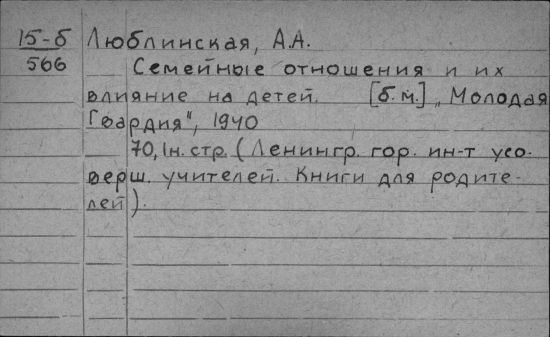 15-б Люблинская, А.А.
566
Семейные отношения и их
влияние на детей. [б.м.] „Молодая
Гвардия", 1940
70, 1н. стр. (Ленингр. гор. ин-т усо-
верш. учителей. Книги для родите-
лей).